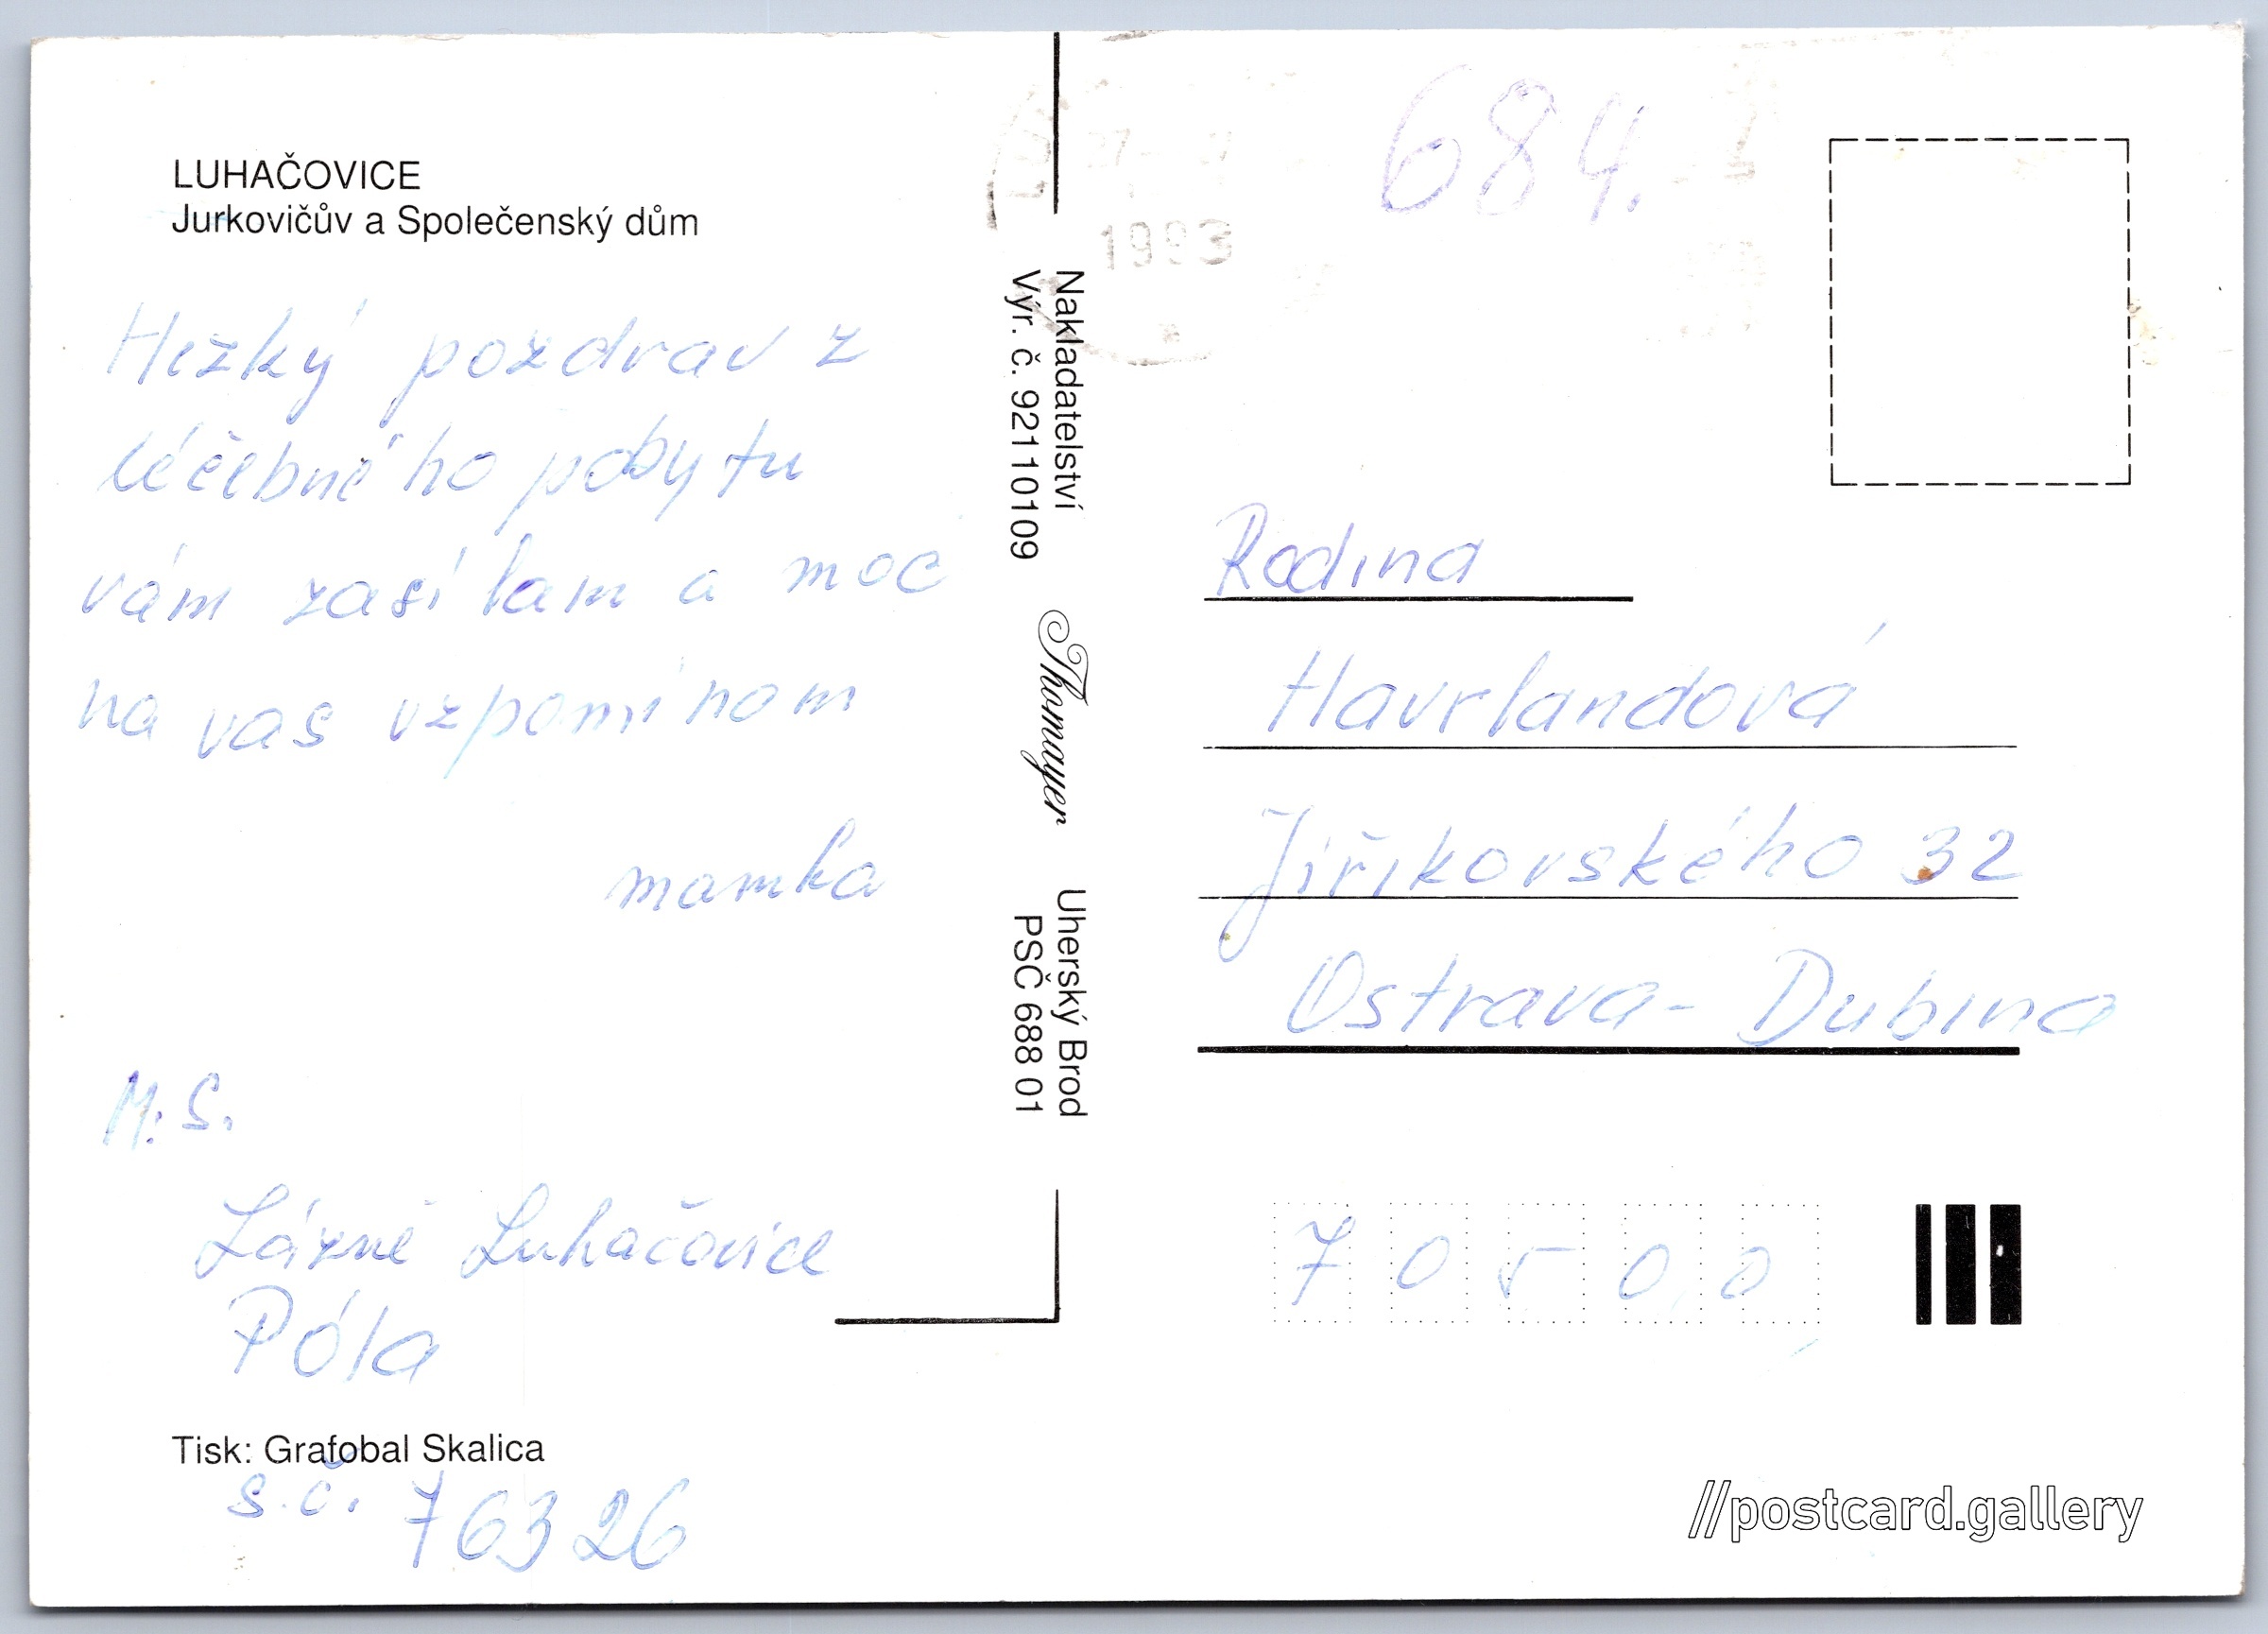 LUHAČOVICE
Jurkovičův a Společenský dům
Hežký pozdrav z
léčebného pobytu
vám zasílam a moc
na vas vzpomínam
mamka
M. S.
Lázně Luhačovice
Póla
Tisk: Grafobal Skalica
s.č. 76326
Nakladatelství
Výr. č. 92110109
Thomayer
Uherský Brod
PSČ 688 01
1993
684.
Rodina
Havrlandová
Jiříkovského 32
Ostrava-Dubina
70500
//postcard.gallery